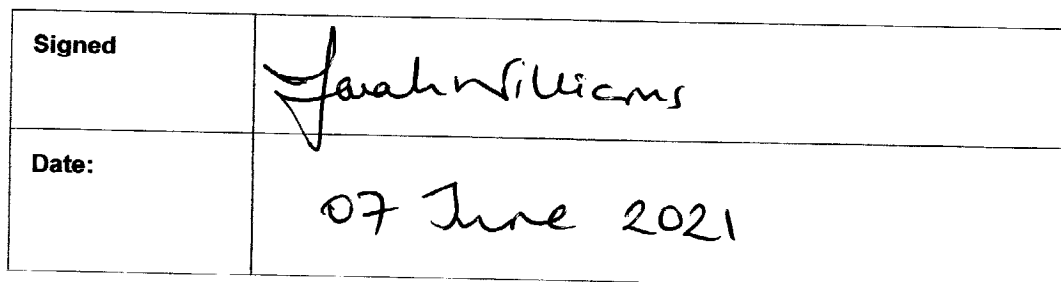 Signed
Sarah Williams
Date:
07 June 2021